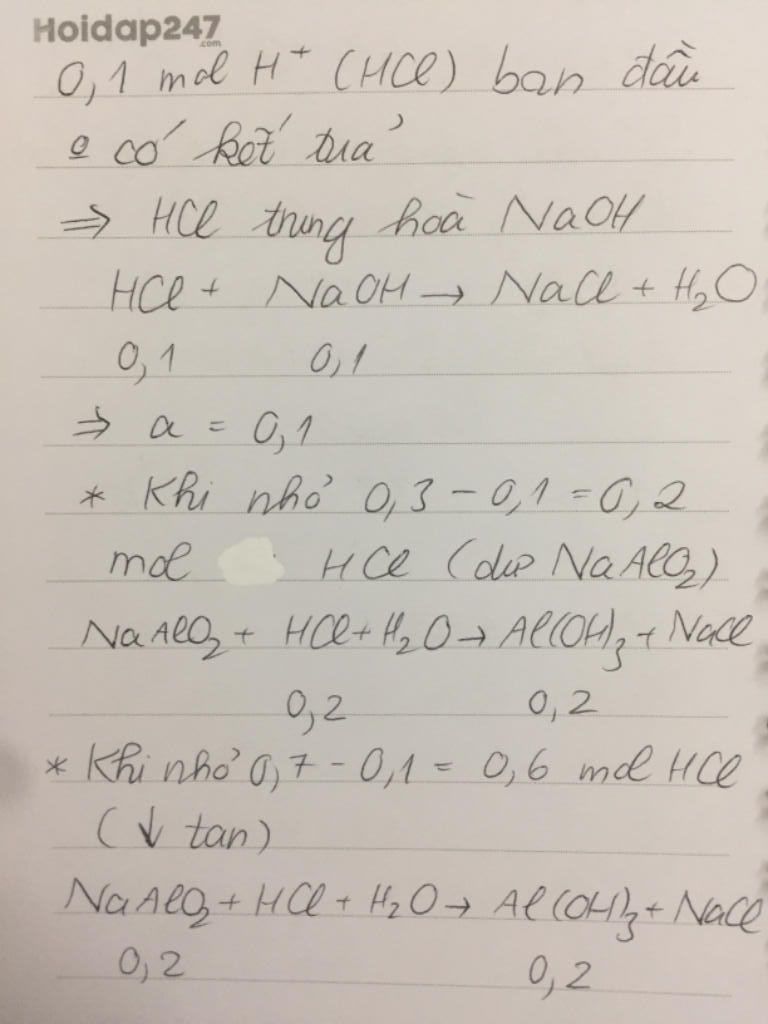 Hoidap247
.com
0,1 mol H⁺ (HCl) ban đầu
o có kết tủa
⇒ HCl trung hoà NaOH
HCl + NaOH → NaCl + H₂O
0,1 0,1
⇒ a = 0,1
* Khi nhỏ 0,3 - 0,1 = 0,2
mol HCl (dư NaAlO₂)
NaAlO₂ + HCl + H₂O → Al(OH)₃ + NaCl
0,2 0,2
* Khi nhỏ 0,7 - 0,1 = 0,6 mol HCl
(↓ tan)
NaAlO₂ + HCl + H₂O → Al(OH)₃ + NaCl
0,2 0,2